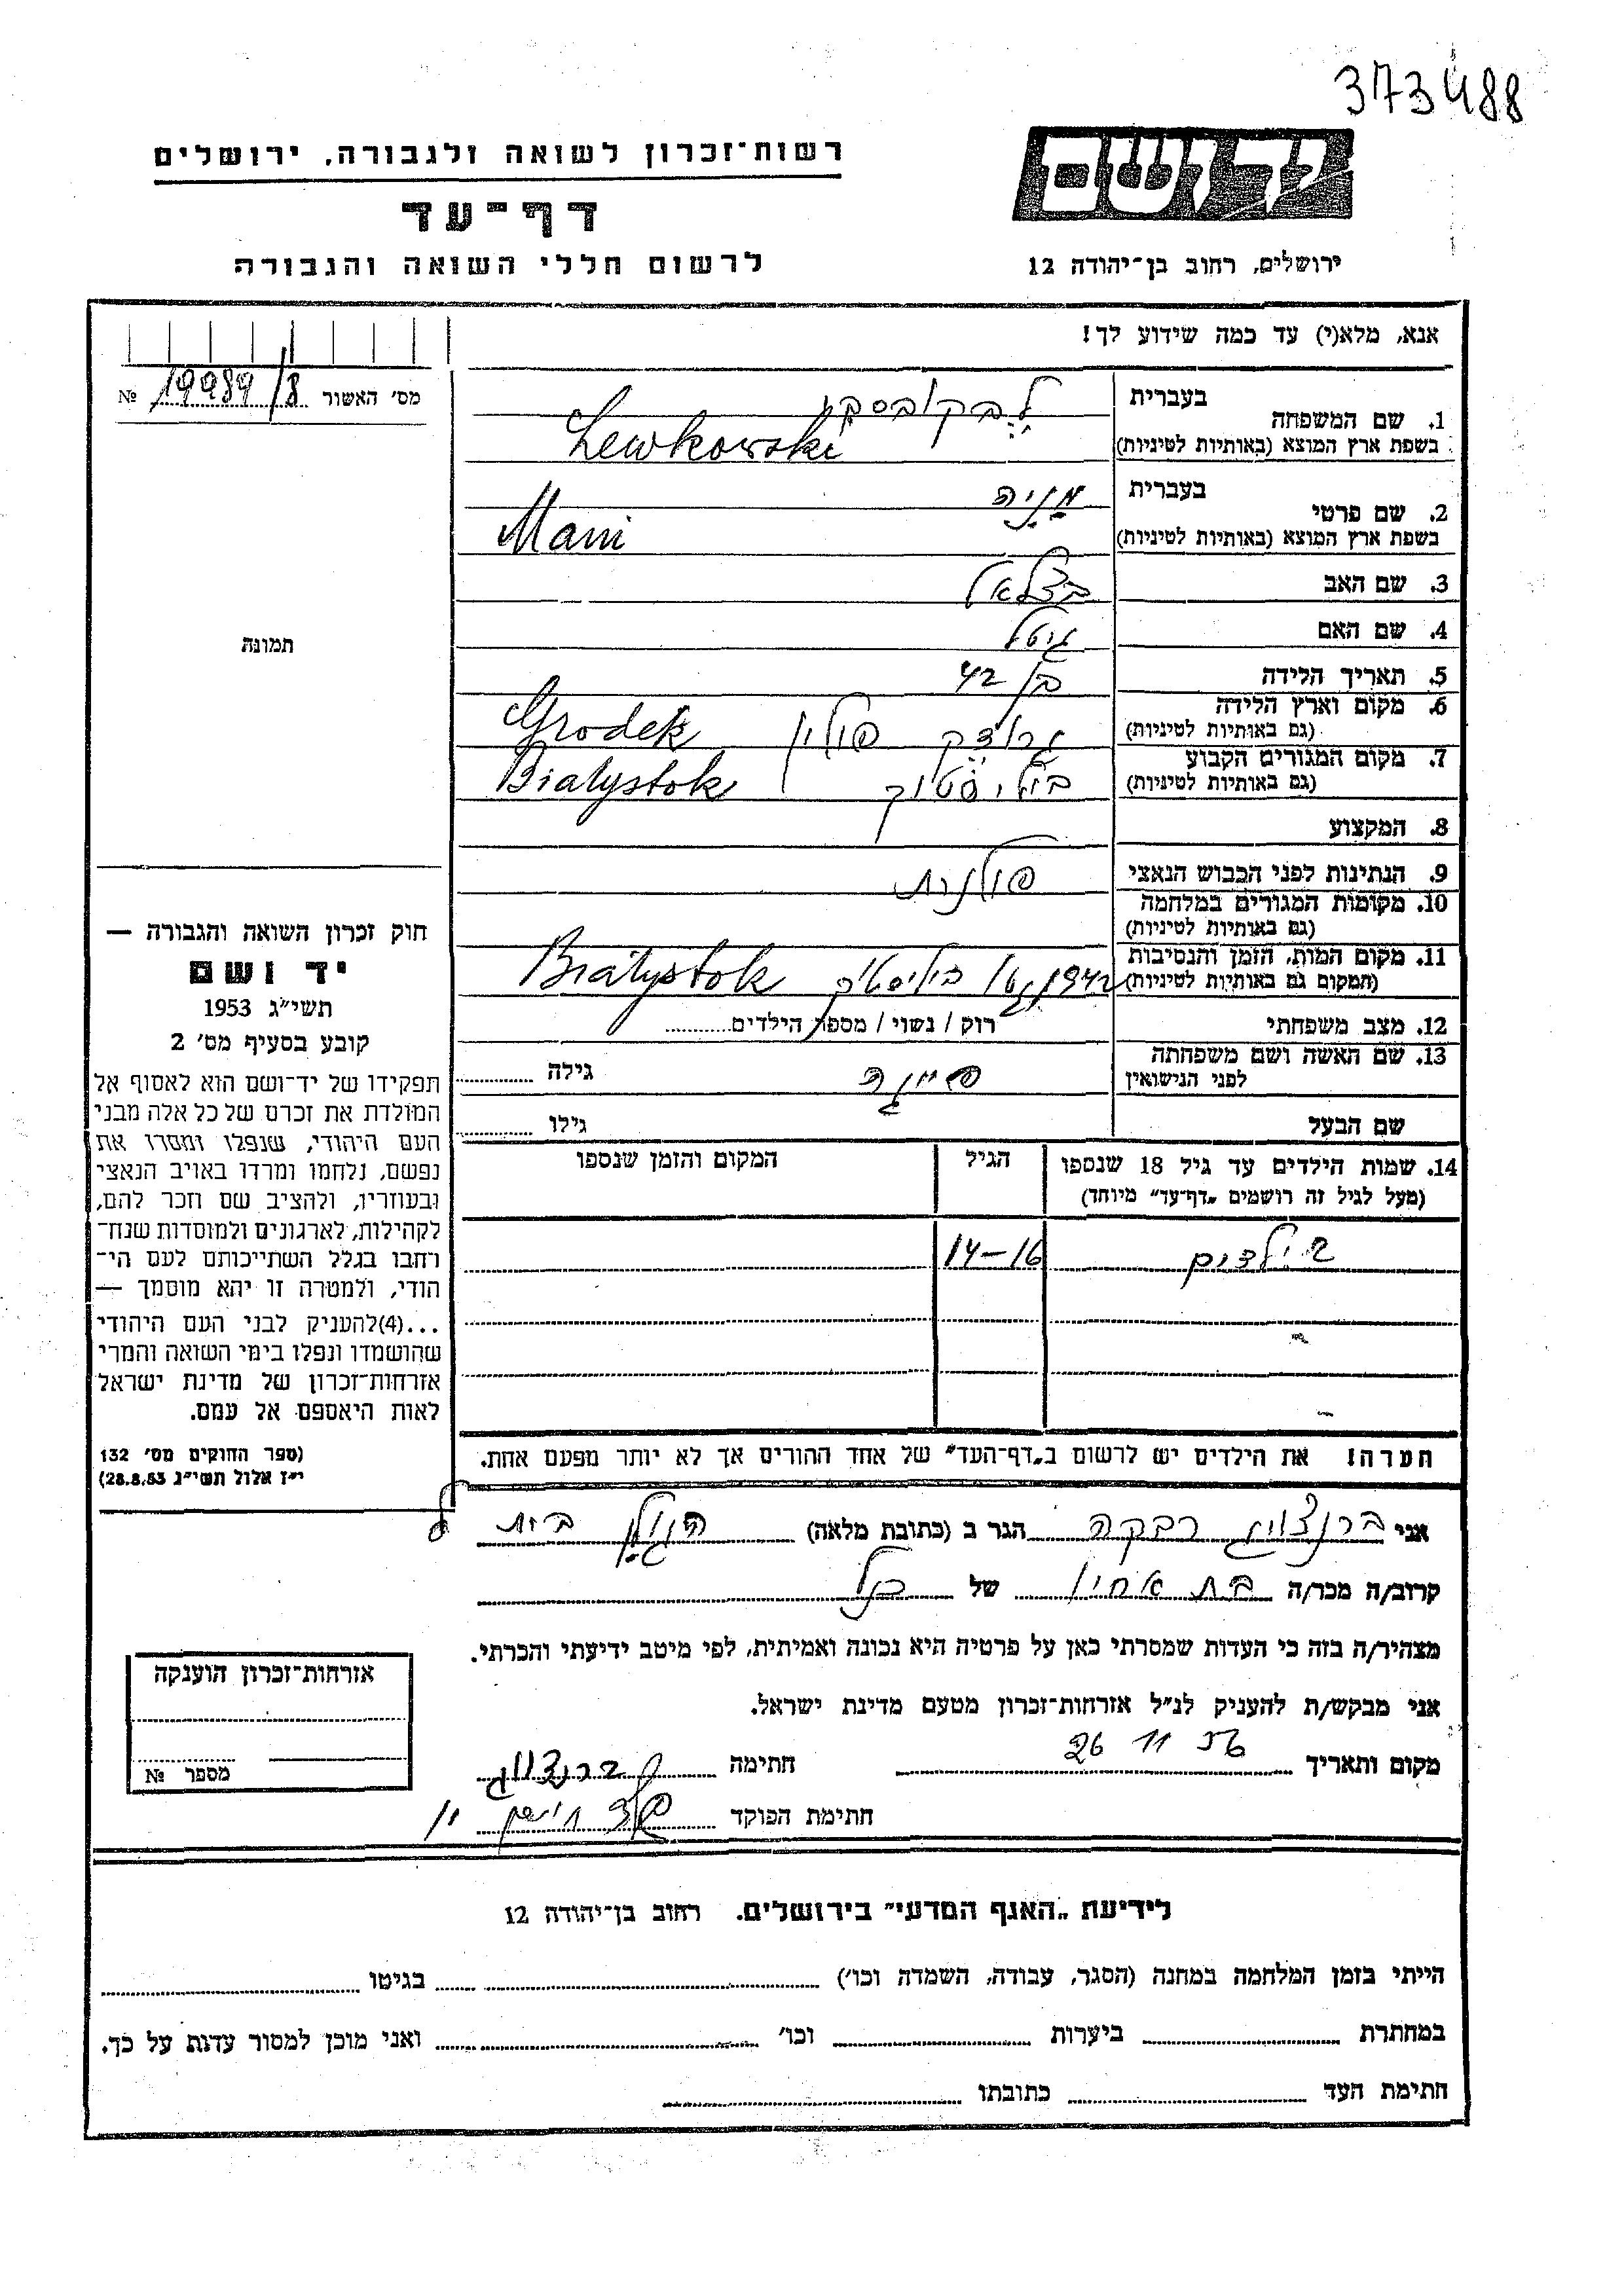 373488
יד ושם
רשות־זכרון לשואה ולגבורה, ירושלים
דף־עד
לרשום חללי השואה והגבורה
ירושלים, רחוב בן־יהודה 12
אנא, מלא(י) עד כמה שידוע לך!
מס׳ האשור 19989/8 №
תמונה
1. שם המשפחה בעברית לבקובסקי
בשפת ארץ המוצא (באותיות לטיניות) Lewkowski
2. שם פרטי בעברית מניה
בשפת ארץ המוצא (באותיות לטיניות) Mani
3. שם האב בצלאל
4. שם האם גיטל
5. תאריך הלידה בן 42
6. מקום וארץ הלידה (גם באותיות לטיניות) גרודק פולין Grodek
7. מקום המגורים הקבוע (גם באותיות לטיניות) ביליסטוק Bialystok
8. המקצוע
9. הנתינות לפני הכבוש הנאצי פולנית
10. מקומות המגורים במלחמה (גם באותיות לטיניות)
11. מקום המות, הזמן והנסיבות (המקום גם באותיות לטיניות) 1942 גטו ביליסטוק Bialystok
12. מצב משפחתי רוק / נשוי / מספר הילדים
13. שם האשה ושם משפחתה לפני הנישואין פייגה גילה
שם הבעל גילו
14. שמות הילדים עד גיל 18 שנספו הגיל המקום והזמן שנספו
(מעל לגיל זה רושמים „דף־עד״ מיוחד)
2 ילדים 14–16
הערה! את הילדים יש לרשום ב„דף־העד״ של אחד ההורים אך לא יותר מפעם אחת.
חוק זכרון השואה והגבורה —
יד ושם
תשי״ג 1953
קובע בסעיף מס׳ 2
תפקידו של יד־ושם הוא לאסוף אל
המולדת את זכרם של כל אלה מבני
העם היהודי, שנפלו ומסרו את
נפשם, נלחמו ומרדו באויב הנאצי
ובעוזריו, ולהציב שם וזכר להם,
לקהילות, לארגונים ולמוסדות שנח־
רחבו בגלל השתייכותם לעם הי־
הודי, ולמטרה זו יהא מוסמך —
...(4)להעניק לבני העם היהודי
שהושמדו ונפלו בימי השואה והמרי
אזרחות־זכרון של מדינת ישראל
לאות היאספם אל עמם.
(ספר החוקים מס׳ 132
י״ז אלול תשי״ג 28.8.53)
אני ברנצוויג רבקה הגר ב (כתובת מלאה)
קרוב/ה מכר/ה בת אחיו של הנ״ל
מצהיר/ה בזה כי העדות שמסרתי כאן על פרטיה היא נכונה ואמיתית, לפי מיטב ידיעתי והכרתי.
אני מבקש/ת להעניק לנ״ל אזרחות־זכרון מטעם מדינת ישראל.
מקום ותאריך 26 11 חתימה ברנצוויג
חתימת הפוקד
אזרחות־זכרון הוענקה
מספר №
לידיעת „האגף המדעי״ בירושלים. רחוב בן־יהודה 12
הייתי בזמן המלחמה במחנה (הסגר, עבודה, השמדה וכו׳) בגיטו
במחתרת ביערות וכו׳ ואני מוכן למסור עדות על כך.
חתימת העד כתובתו